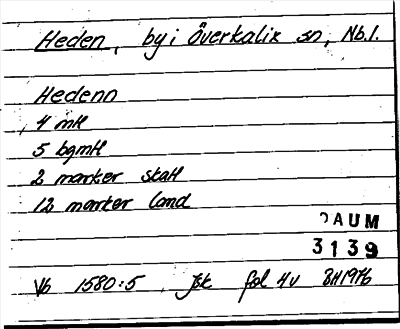 Heden, by i Överkalix sn, Nb.l.
Hedenn
4 mtl
5 bgmtl
2 marker skatt
12 marker land
DAUM
3139
Vb 1580:5 Jbk fol 4v BH1976